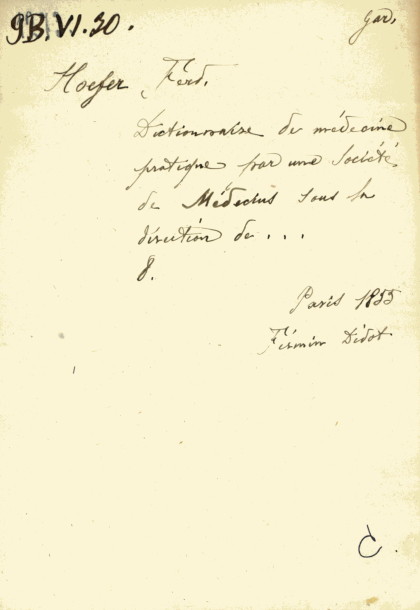 9B.VI.30.
Gad.
Hoefer, Ferd.
Dictionnaire de médecine
pratique par une Société
de Médecins sous la
direction de ...
8.
Paris 1855
Firmin Didot
C.